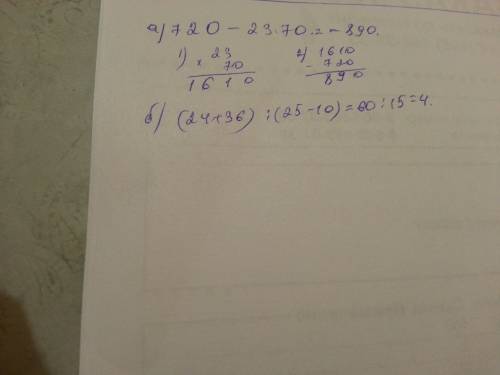 а) 720 - 23·70 = -890.
1) × 23 2) 1610
70 - 720
1610 890
б) (24+36) : (25-10) = 60 : 15 = 4.